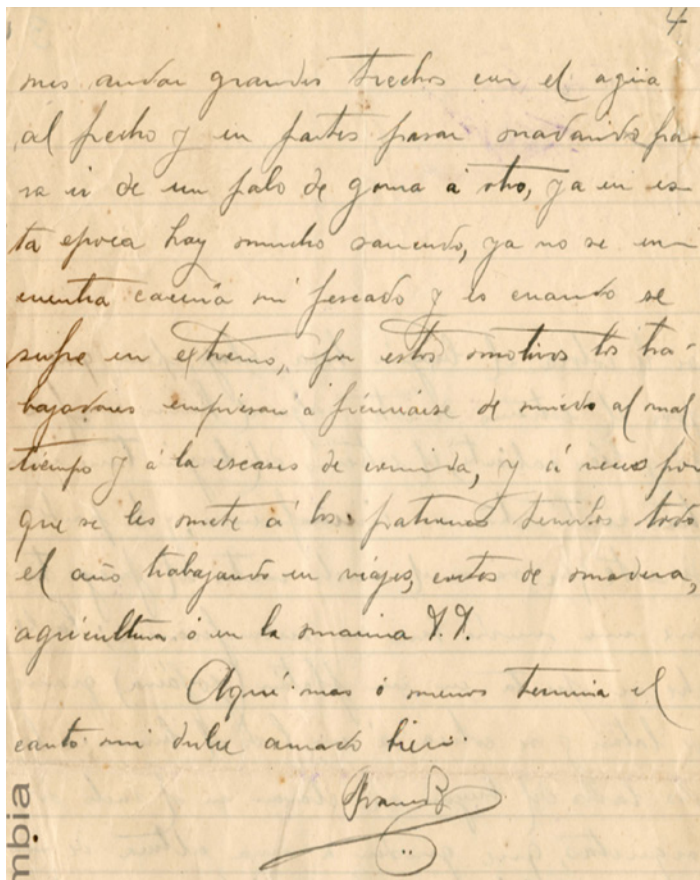 4
mos andar grandes trechos con el agua
al pecho y en partes pasar nadando pa-
ra ir de un palo de goma á otro, ya en es-
ta epoca hay mucho zancudo, ya no se en-
cuentra caceria ni pescado y es cuando se
sufre en extremo, por estos motivos los tra-
bajadores empiesan a de miedo al mal
tiempo y á la escases de comida, y á veces por
que se les mete á los patrones tenerlos todo
el año trabajando en viajes, cortes de madera,
agricultura ó en la marina &.&.
Aqui mas ó menos termina el
canto mi dulce amado bien.
mbia